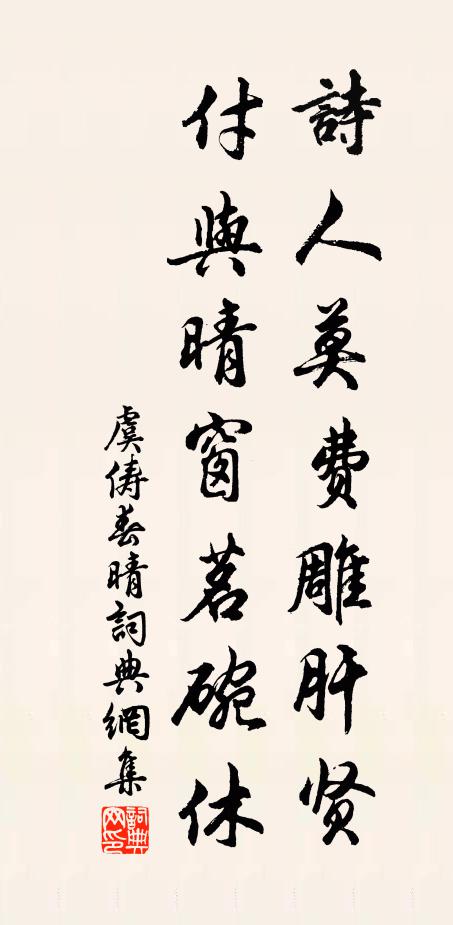 詩人莫費雕肝贤
付與晴窗茗碗休
虞俦春晴詞典網集
詞典网印